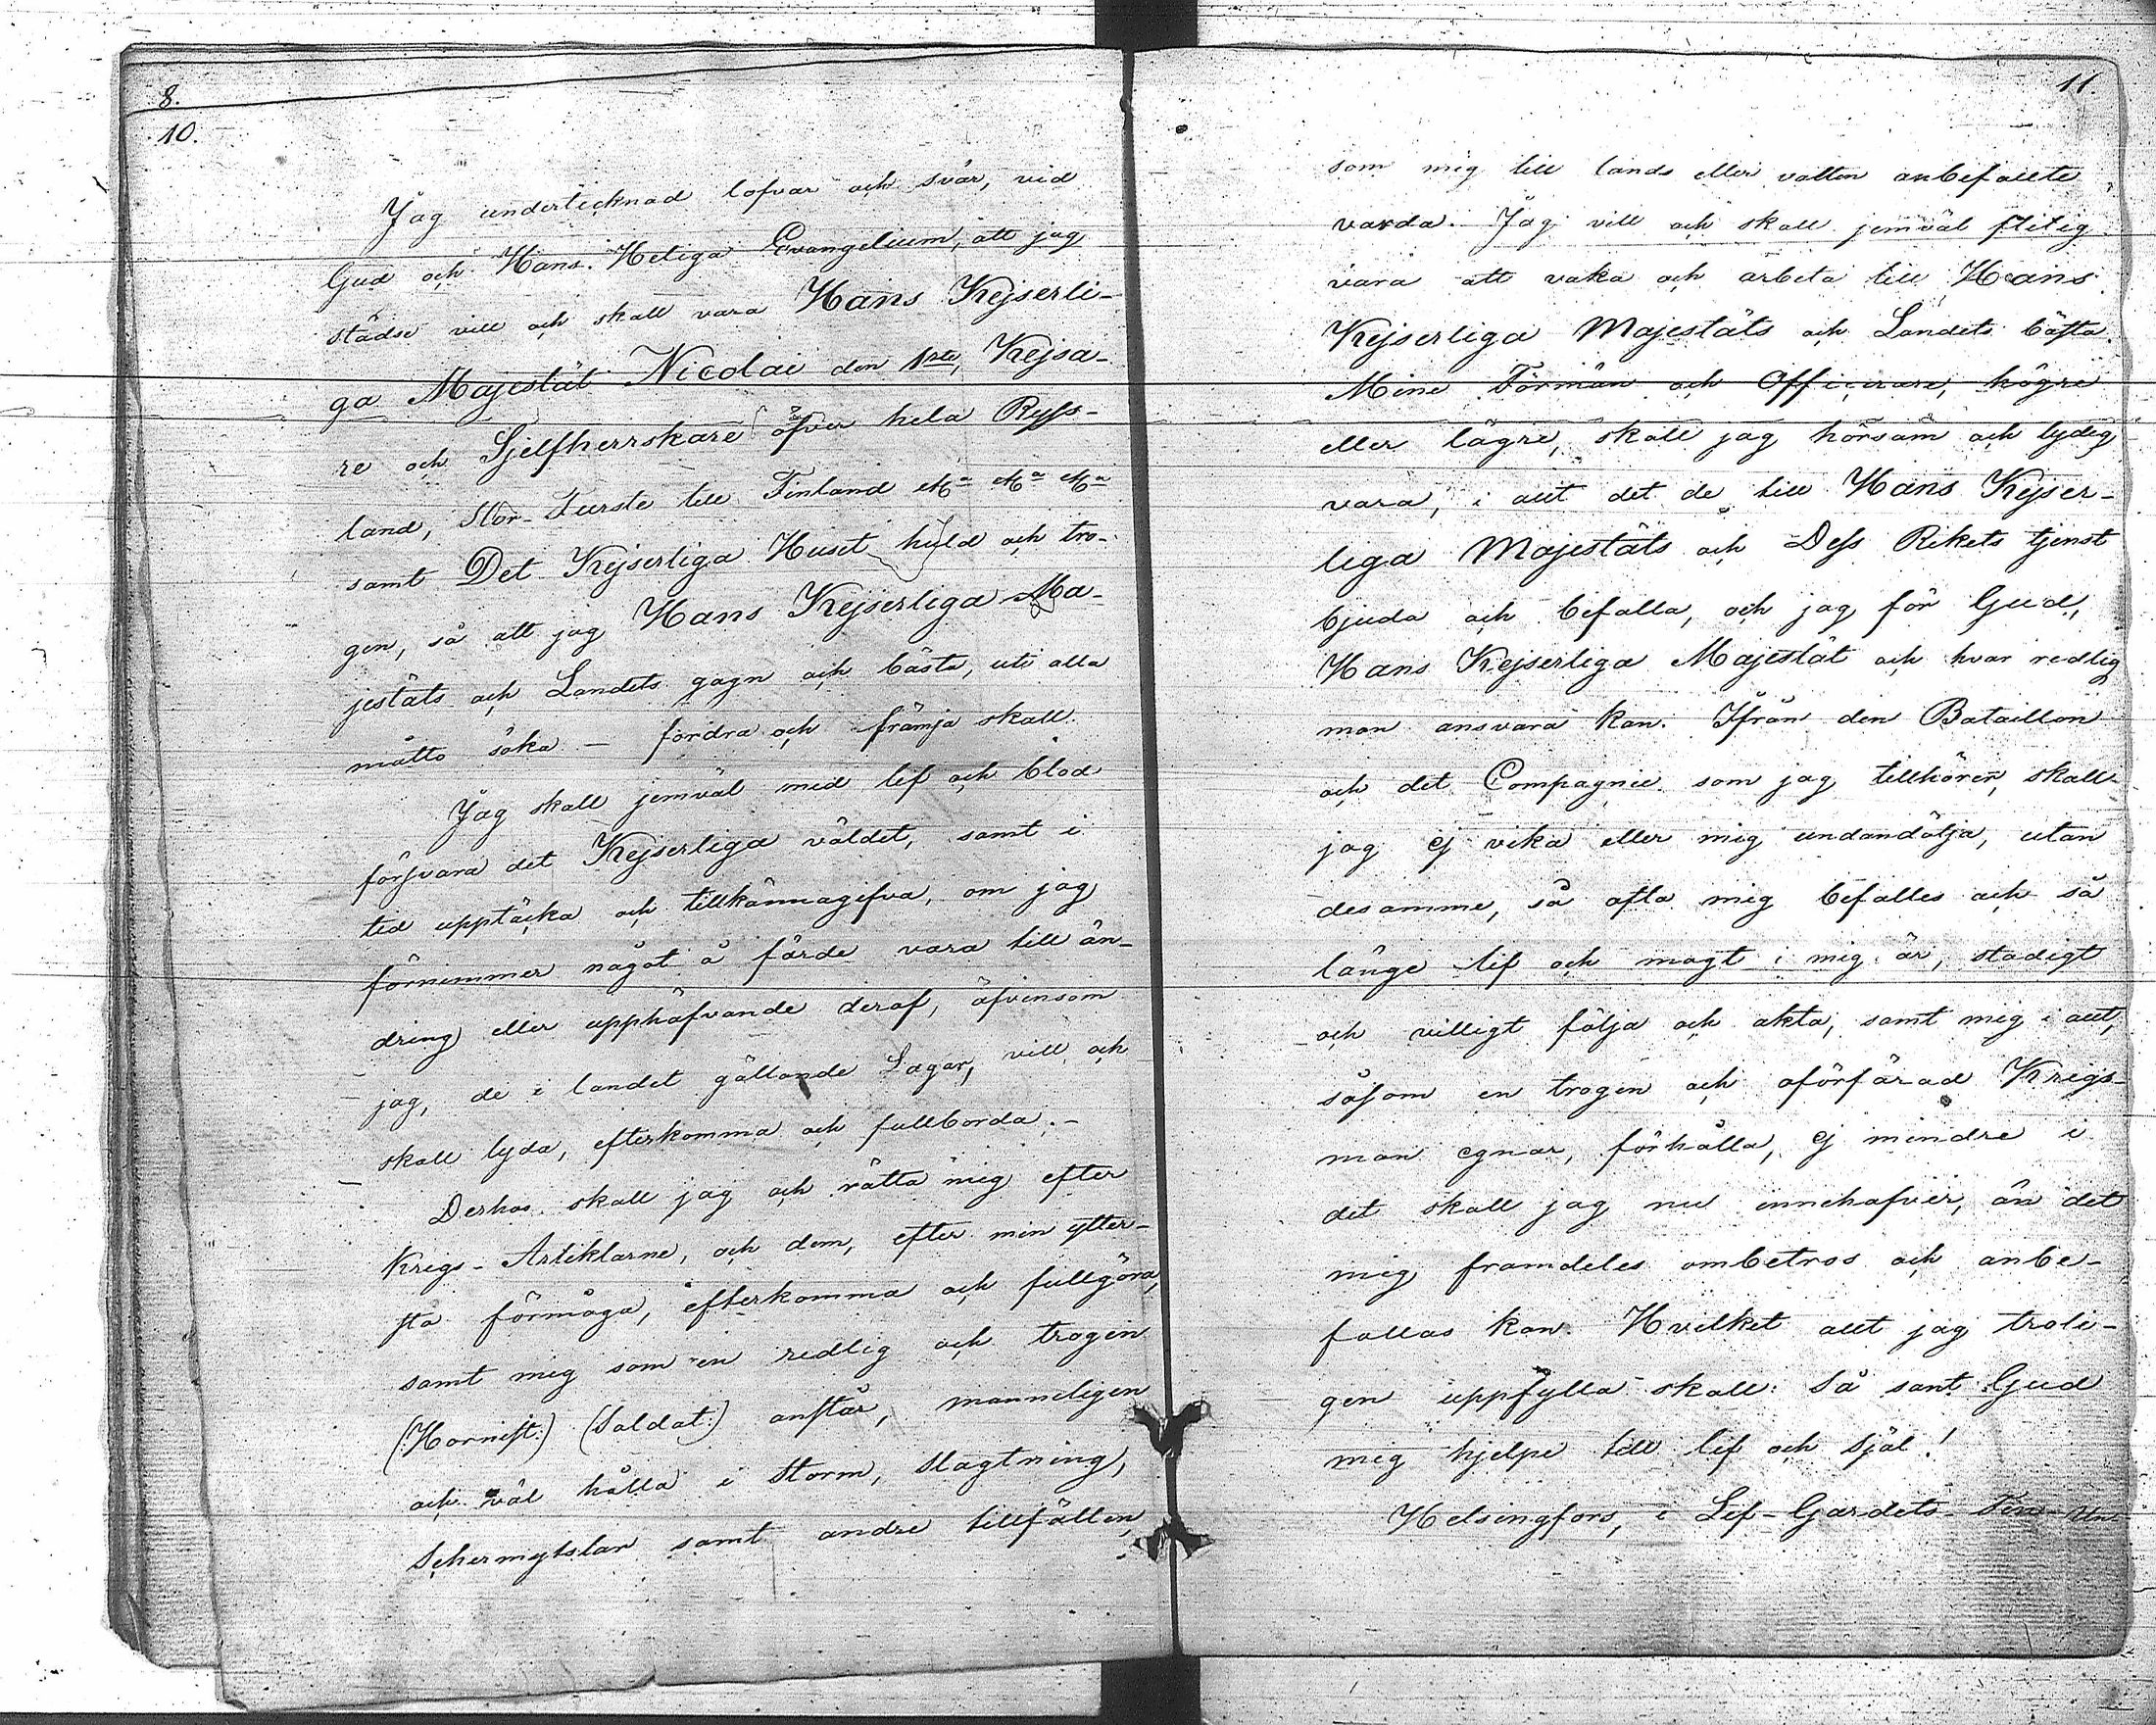 8.
10.
Jag undertecknad lofvar och svär, vid
Gud och Hans Heliga Evangelium, att jag
städse vill och skall vara Hans Kejserli-
ga Majestät Nicolai den 1ste, Kejsa-
re och Sjelfherrskare öfver hela Ryss-
land, Stor-Furste till Finland &a &a &a
samt Det Kejserliga Huset huld och tro-
gen, så att jag Hans Kejserliga Ma-
jestäts och Landets gagn och bästa, uti alla
måtto söka – fordra och främja skall.
Jag skall jemväl med lif och blod
försvara det Kejserliga väldet, samt i
tid upptäcka och tillkännagifva, om jag
förnimmer något å färde vara till än-
dring eller upphäfvande deraf, äfvensom
jag, de i landet gällande Lagar, vill och
skall lyda, efterkomma och fullborda. –
Derhos skall jag och rätta mig efter
Krigs-Artiklarne, och dem, efter min ytter-
sta förmåga, efterkomma och fullgöra,
samt mig som en redlig och trogen
(:Hornist:) (Soldat:) anstår, manneligen
och väl hålla i Storm, Slagtning,
Schermytslar samt andre tillfällen,
11.
som mig till lands eller vatten anbefallte
varda. Jag vill och skall jemväl flitig
vara att vaka och arbeta till Hans
Kejserliga Majestäts och Landets bästa.
Mine Förmän och Officerare, högre
eller lägre, skall jag hörsam och lydig
vara, i allt det de till Hans Kejser-
liga Majestäts och Dess Rikets tjenst
bjuda och befalla, och jag för Gud,
Hans Kejserliga Majestät och hvar redlig
man ansvara kan. Ifrån den Bataillon
och det Compagnie som jag tillhörer, skall
jag ej vika eller mig undandölja, utan
desamme, så ofta mig befalles och så
länge lif och magt i mig är, stadigt
och villigt följa och akta, samt mig i allt,
såsom en trogen och oförfärad Krigs-
man egnar, förhålla, ej mindre i
det skall jag nu innehafver, än det
mig framdeles ombetros och anbe-
fallas kan. Hvilket allt jag troli-
gen uppfylla skall: Så sant Gud
mig hjelpe till lif och Själ!
Helsingfors, i Lif-Gardets